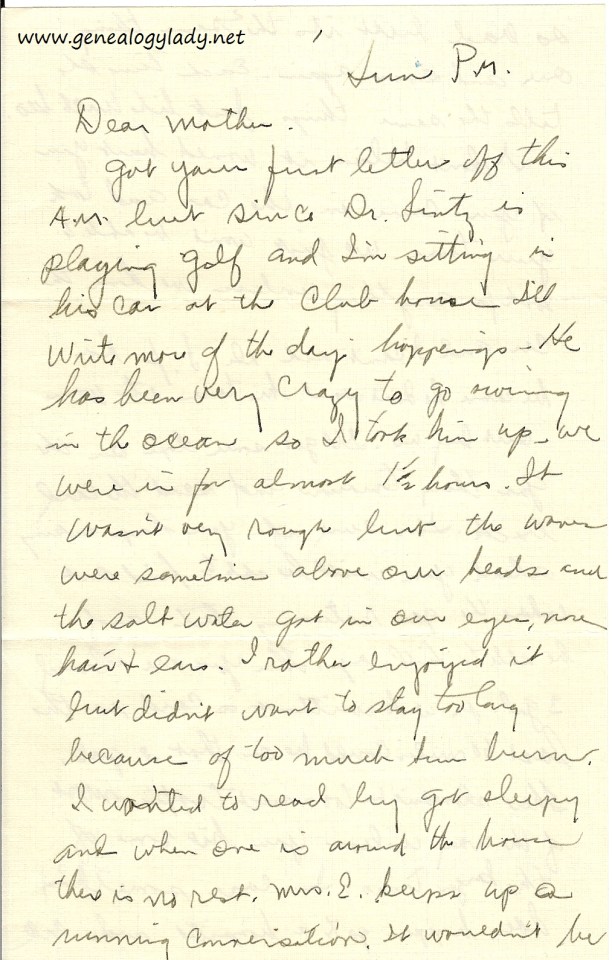 www.genealogylady.net
Sun P.M.
Dear Mother.
Got your first letter off this
A.M. but since Dr. Sintz is
playing golf and I'm sitting in
his car at the Club house I'll
write more of the days happenings - He
has been very crazy to go swimming
in the ocean so I took him up - we
were in for almost 1½ hours. It
wasn't very rough but the waves
were sometimes above our heads and
the salt water got in our eyes, nose
hair & ears. I rather enjoyed it
but didn't want to stay too long
because of too much sun burn.
I wanted to read by got sleepy
and when one is around the house
there is no rest. Mrs. E. keeps up a
running conversation. It wouldn't be